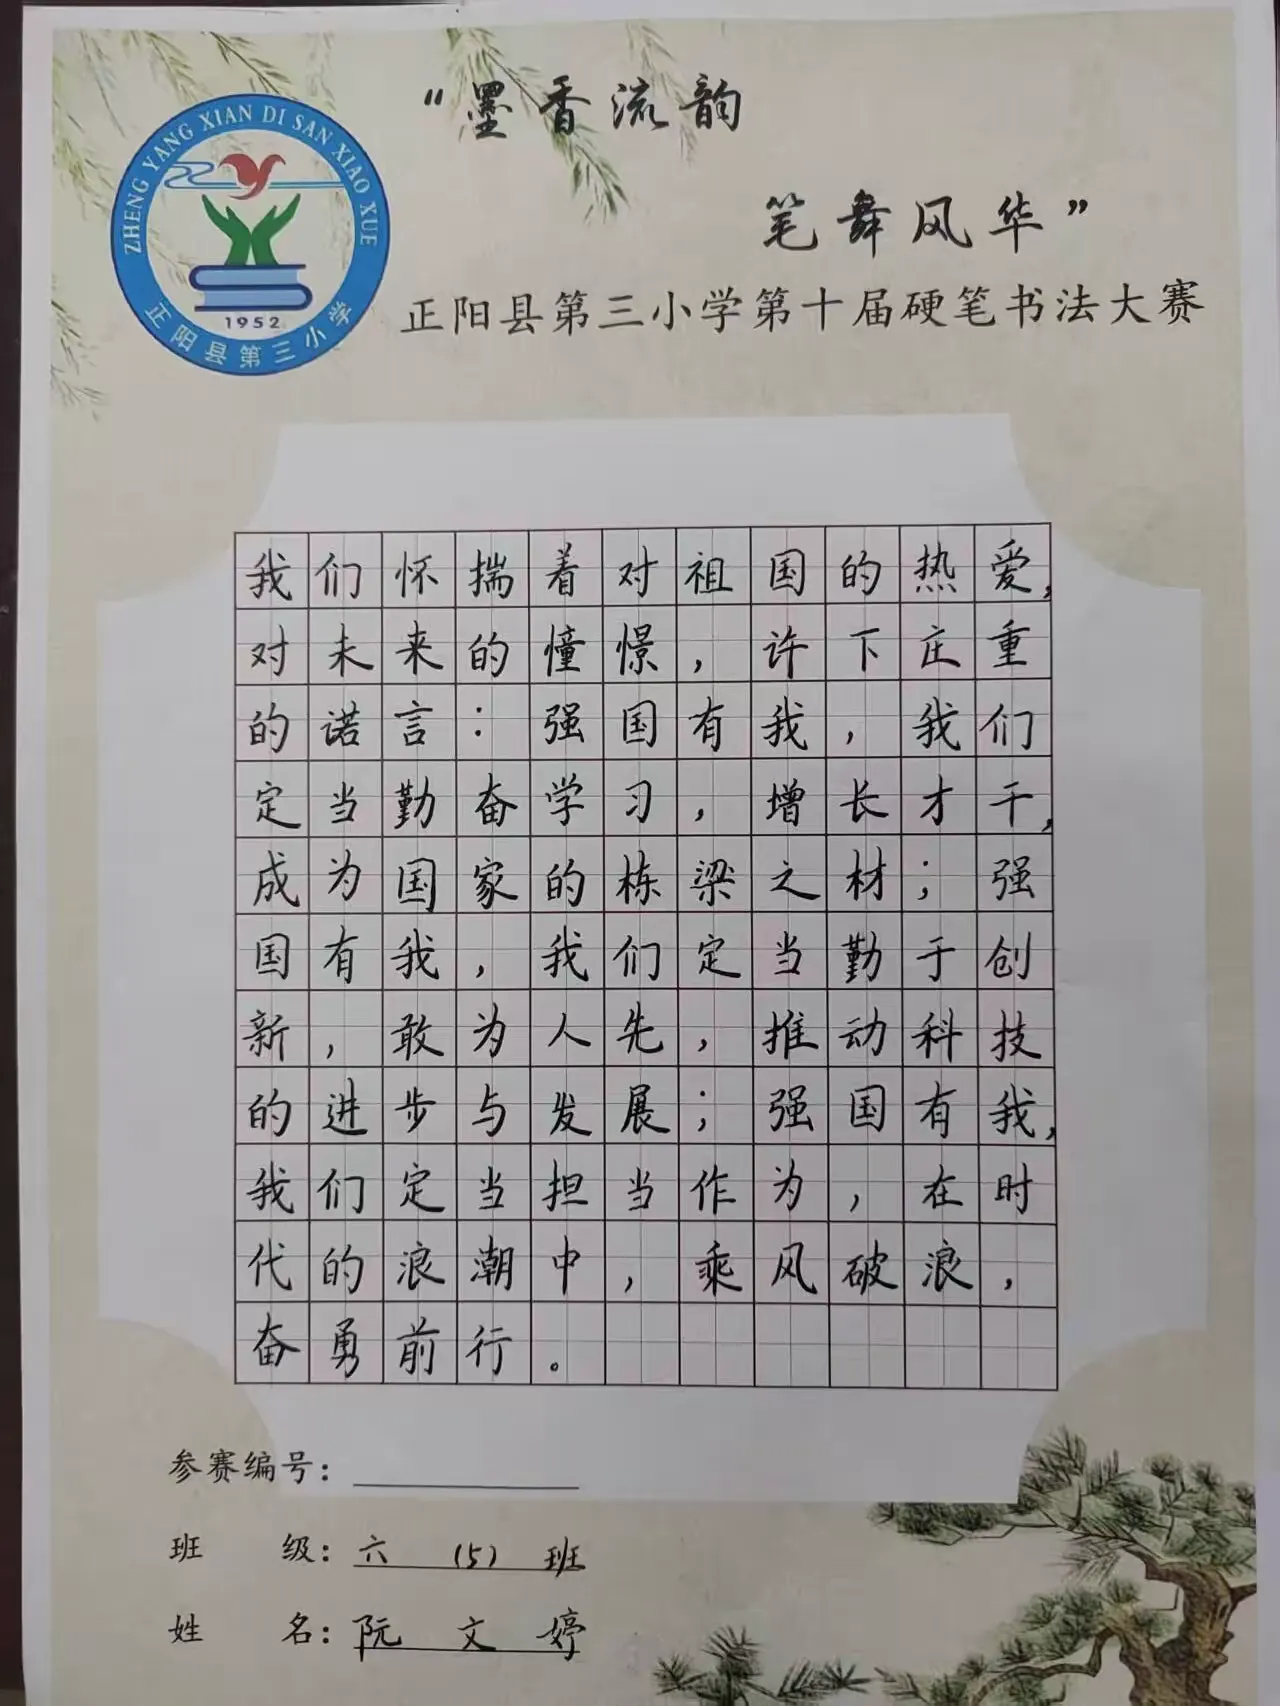 “墨香流韵
笔舞风华”
ZHENG YANG XIAN DI SAN XIAO XUE
1952
正阳县第三小学
正阳县第三小学第十届硬笔书法大赛
我们怀揣着对祖国的热爱，
对未来的憧憬，许下庄重
的诺言：强国有我，我们
定当勤奋学习，增长才干，
成为国家的栋梁之材；强
国有我，我们定当勤于创
新，敢为人先，推动科技
的进步与发展；强国有我，
我们定当担当作为，在时
代的浪潮中，乘风破浪，
奋勇前行。
参赛编号：
班级：六（5）班
姓名：阮文婷